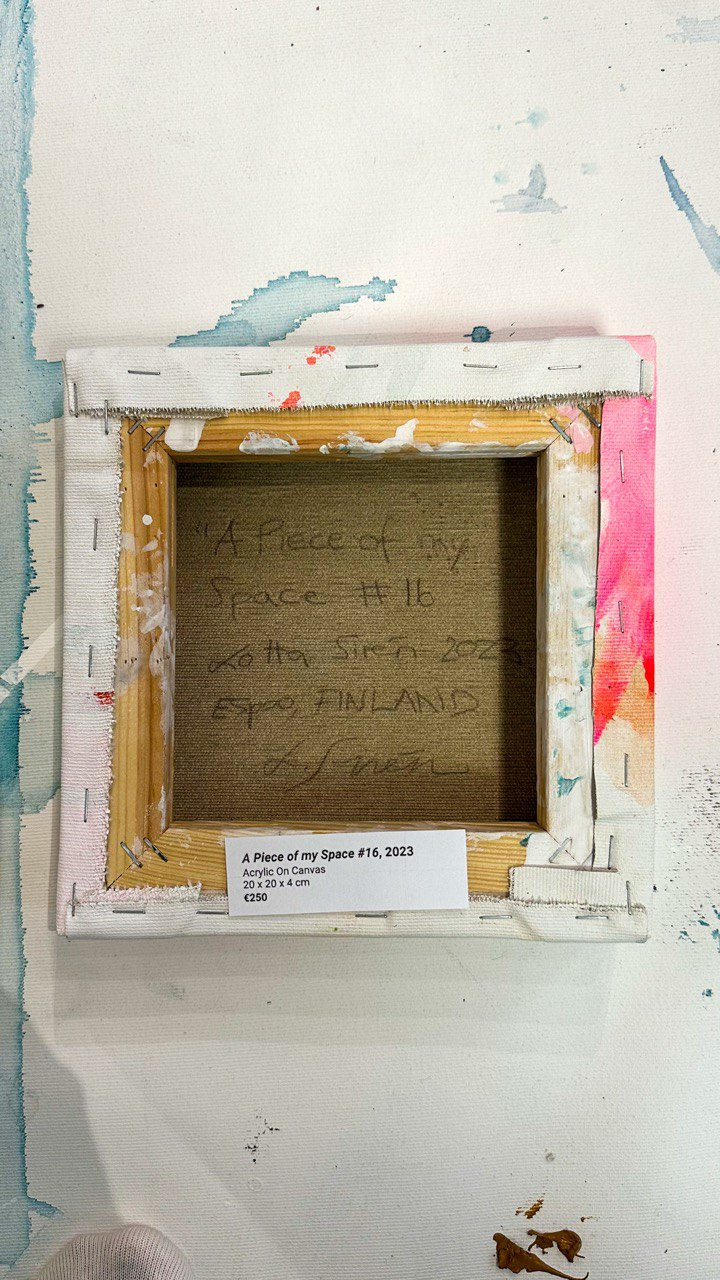 "A Piece of my"
Space #16
Lotta Sirén 2023
Espoo, FINLAND
L Sirén
A Piece of my Space #16, 2023
Acrylic On Canvas
20 x 20 x 4 cm
€250